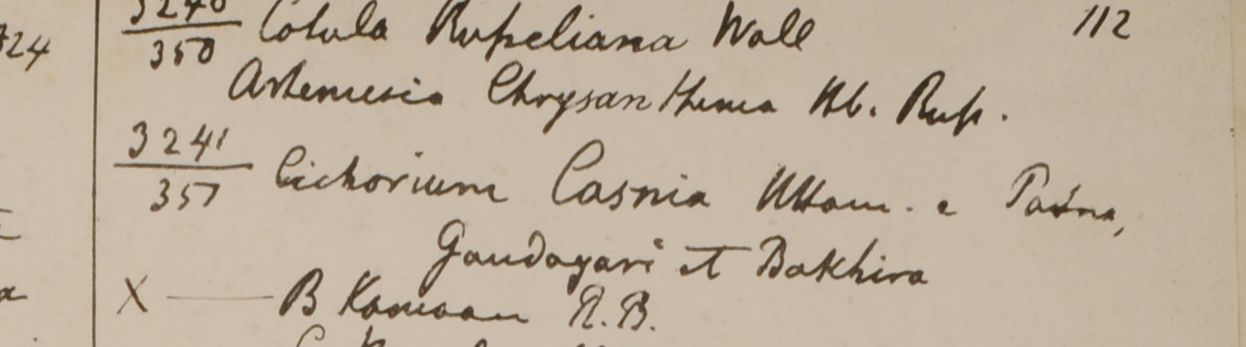 324
3240 Cotula Rupeliana Wall 112
350
Artemisia Chrysanthema Hb. Rup.
3241 Cichorium Casnia Ham. e Patna,
357
Goudagari et Bakhira
X — B Kamaon R.B.